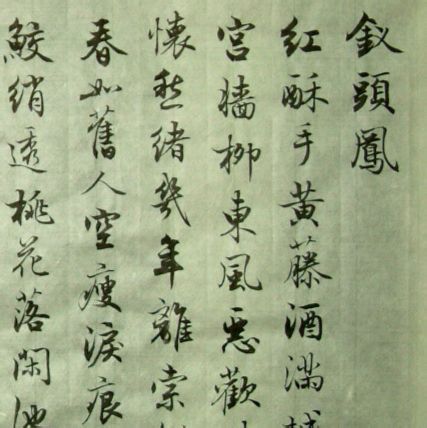 釵頭鳳
紅酥手黃藤酒滿城
宮牆柳東風惡歡
懷愁緒幾年離索
春如舊人空瘦淚痕
鮫綃透桃花落閑池